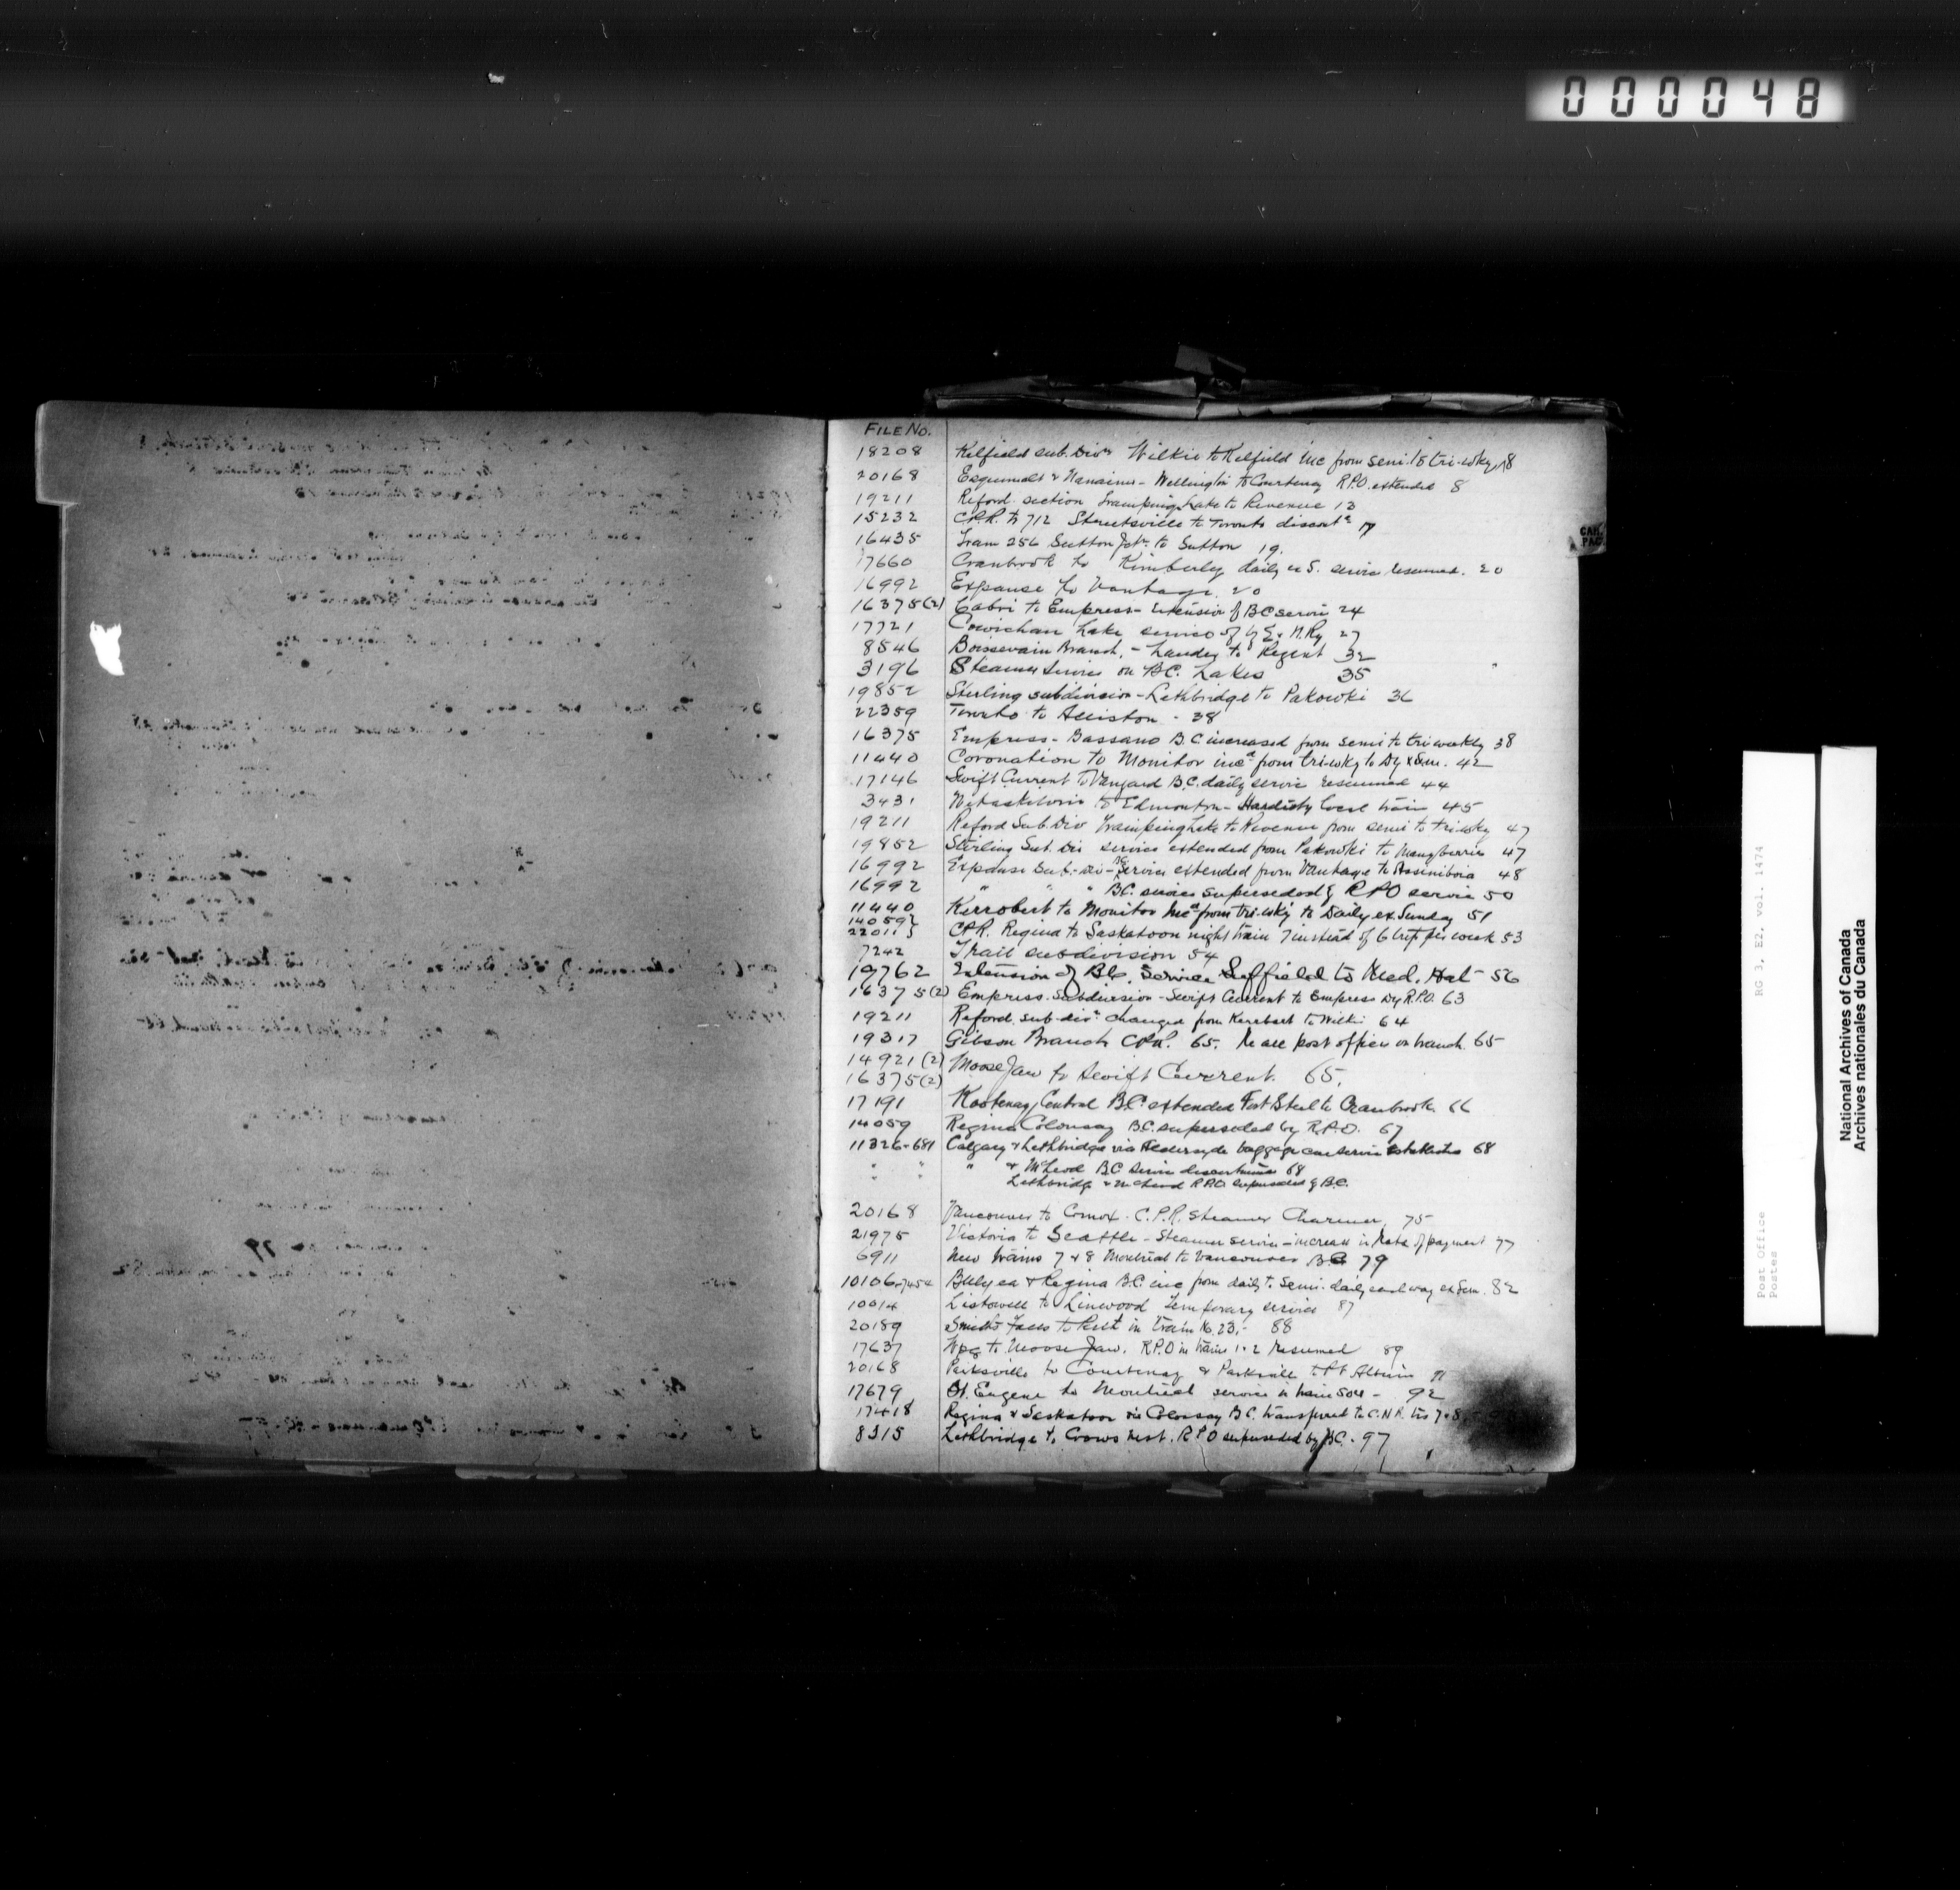 000048
FILE No.
18208 Kelfield sub. Divn Wilkie to Kelfield inc from semi to tri-wkly 8
20168 Esquimalt & Nanaimo - Wellington to Courtenay R.P.O. extended 8
19211 Reford section Tramping Lake to Revenue 13
15232 C.P.R. tr 712 Streetsville to Toronto discontd 17
16435 Tram 256 Sutton Jctn to Sutton 19.
17660 Cranbrook to Kimberly daily ex S. service resumed. 20
16992 Expanse to Vantage. 20
16375(2) Cabri to Empress - Extension of BC service 24
17721 Cowichan Lake service of E & N. Ry 27
8546 Boissevain Branch, - Lauder to Regent 32
3196 Steamer Service on B.C. Lakes 35
19852 Sterling subdivision - Lethbridge to Pakowki 36
22359 Toronto to Alliston - 38
16375 Empress - Bassano B.C. increased from semi to tri weekly 38
11440 Coronation to Monitor incd from tri-wkly to Dy x Sun. 42
17146 Swift Current to Vangard B.C. daily service resumed 44
3431 Wetaskiwin to Edmonton - Hardisty local train 45
19211 Reford Sub. Div Tramping Lake to Revenue from semi to tri-wkly 47
19852 Sterling Sub. Div service extended from Pakowki to Manyberries 47
16992 Expanse Sub.-div - BC service extended from Vantage to Assiniboia 48
16992 " " " BC. service superseded by RPO service 50
11440 Kerrobert to Monitor incd from tri-wkly to Daily ex Sunday 51
14059 }
22011 } C.P.R. Regina to Saskatoon night train 7 instead of 6 trips per week 53
7242 Trail subdivision 54
19762 Extension of B.C. Service Suffield to Med. Hat - 56
16375(2) Empress Subdivision - Swift Current to Empress Dy R.P.O. 63
19211 Reford sub-divn changed from Kerrobert to Wilkie 64
19317 Gibson Branch CPR. 65. Re all post offices on branch. 65
14921(2) Moose Jaw to Swift Current. 65.
16375(2)
17191 Kootenay Central B.C. extended Fort Steel to Cranbrook. 66
14059 Regina Colonsay B.C. superseded by R.P.O. 67
11326-681 Calgary & Lethbridge via Aldersyde baggage car service established 68
" " " & McLeod B.C. service discontinued 68
" " Lethbridge & McLeod R.P.O. superseded by B.C.
20168 Vancouver to Comox. C.P.R. Steamer Charmer, 75
21975 Victoria to Seattle - Steamer service - increase in rate of payment 77
6911 New trains 7 & 8 Montreal to Vancouver B.C 79
10106-7454 Bulyea & Regina B.C. inc from daily to semi-daily each way ex Sun. 82
10014 Listowell to Linwood temporary service 87
20189 Smiths Falls to Pelt in train 16.23, - 88
17637 Wpg to Moose Jaw. R.P.O in trains 1 & 2 resumed 89
20168 Parksville to Courtenay & Parksville to Pt Alberni 91
17679 St. Eugene to Montreal service in train 504 - 92
17418 Regina & Saskatoon via Colonsay B.C. transferred to C.N.R. trs 7 & 8
8315 Lethbridge to Crows Nest. R.P.O superseded by B.C. - 97
CAN.
PAC
RG 3, E2, vol. 1474
Post Office
Postes
National Archives of Canada
Archives nationales du Canada